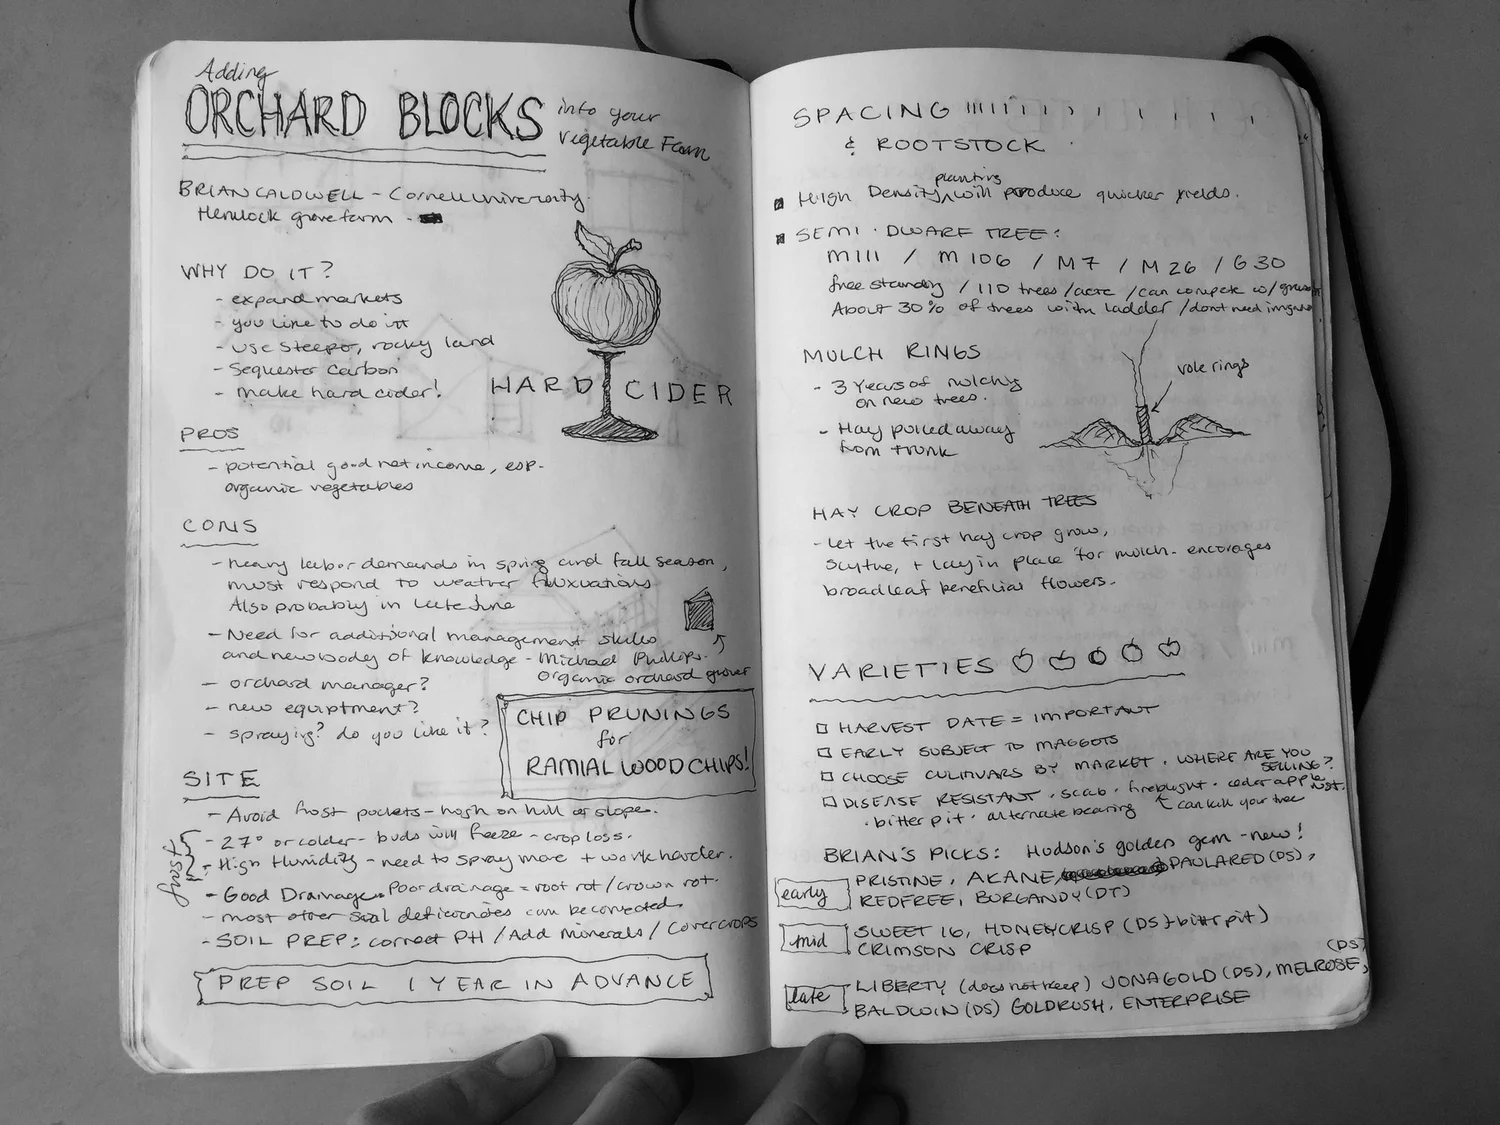 Adding
ORCHARD BLOCKS into your
vegetable Farm
BRIAN CALDWELL - Cornell University.
Hemlock grove farm -
WHY DO IT?
- expand markets
- you like to do it
- use steep, rocky land
- Sequester Carbon
- make hard cider!
HARD CIDER
PROS
- potential good net income, esp.
organic vegetables
CONS
- heavy labor demands in spring and fall season,
must respond to weather fluxuations.
Also probably in late June
- Need for additional management skills
and new body of knowledge - Michael Phillips.
organic orchard grower
- orchard manager?
- new equiptment?
- spraying? do you like it?
CHIP PRUNINGS
for
RAMIAL WOODCHIPS!
SITE
- Avoid frost pockets - high on hill or slope.
- 27° or colder - buds will freeze - crop loss.
- High Humidity - need to spray more + work harder.
- Good Drainage. Poor drainage = root rot / crown rot.
- most other soil can be corrected
- SOIL PREP: correct PH / Add minerals / Cover crops
PREP SOIL 1 YEAR IN ADVANCE
SPACING
& ROOTSTOCK
High Density planting will produce quicker yields.
SEMI-DWARF TREE:
M111 / M106 / M7 / M26 / G30
free standing / 110 trees / acre / can compete w/
About 30% of trees with ladder / dont need
MULCH RINGS
- 3 Years of mulching
on new trees.
vole rings
- Hay pulled away
from trunk
HAY CROP BENEATH TREES
- Let the first hay crop grow,
Scythe, + lay in place for mulch. encorages
broadleaf beneficial flowers.
VARIETIES
HARVEST DATE = IMPORTANT
EARLY SUBJECT TO MAGGOTS
CHOOSE CULTIVARS BY MARKET. WHERE ARE YOU
SELLING?
DISEASE RESISTANT. scab. fireblight. cedar apple rust.
. bitter pit. alternate bearing can kill your tree
BRIAN'S PICKS: Hudson's golden gem - new!
early PRISTINE, AKANE, PAULARED (DS),
REDFREE, BURGANDY (DT)
mid SWEET 16, HONEYCRISP (DS + bitter pit)
CRIMSON CRISP
late LIBERTY (does not keep) JONAGOLD (DS), MELROSE, (DS)
BALDWIN (DS) GOLDRUSH, ENTERPRISE